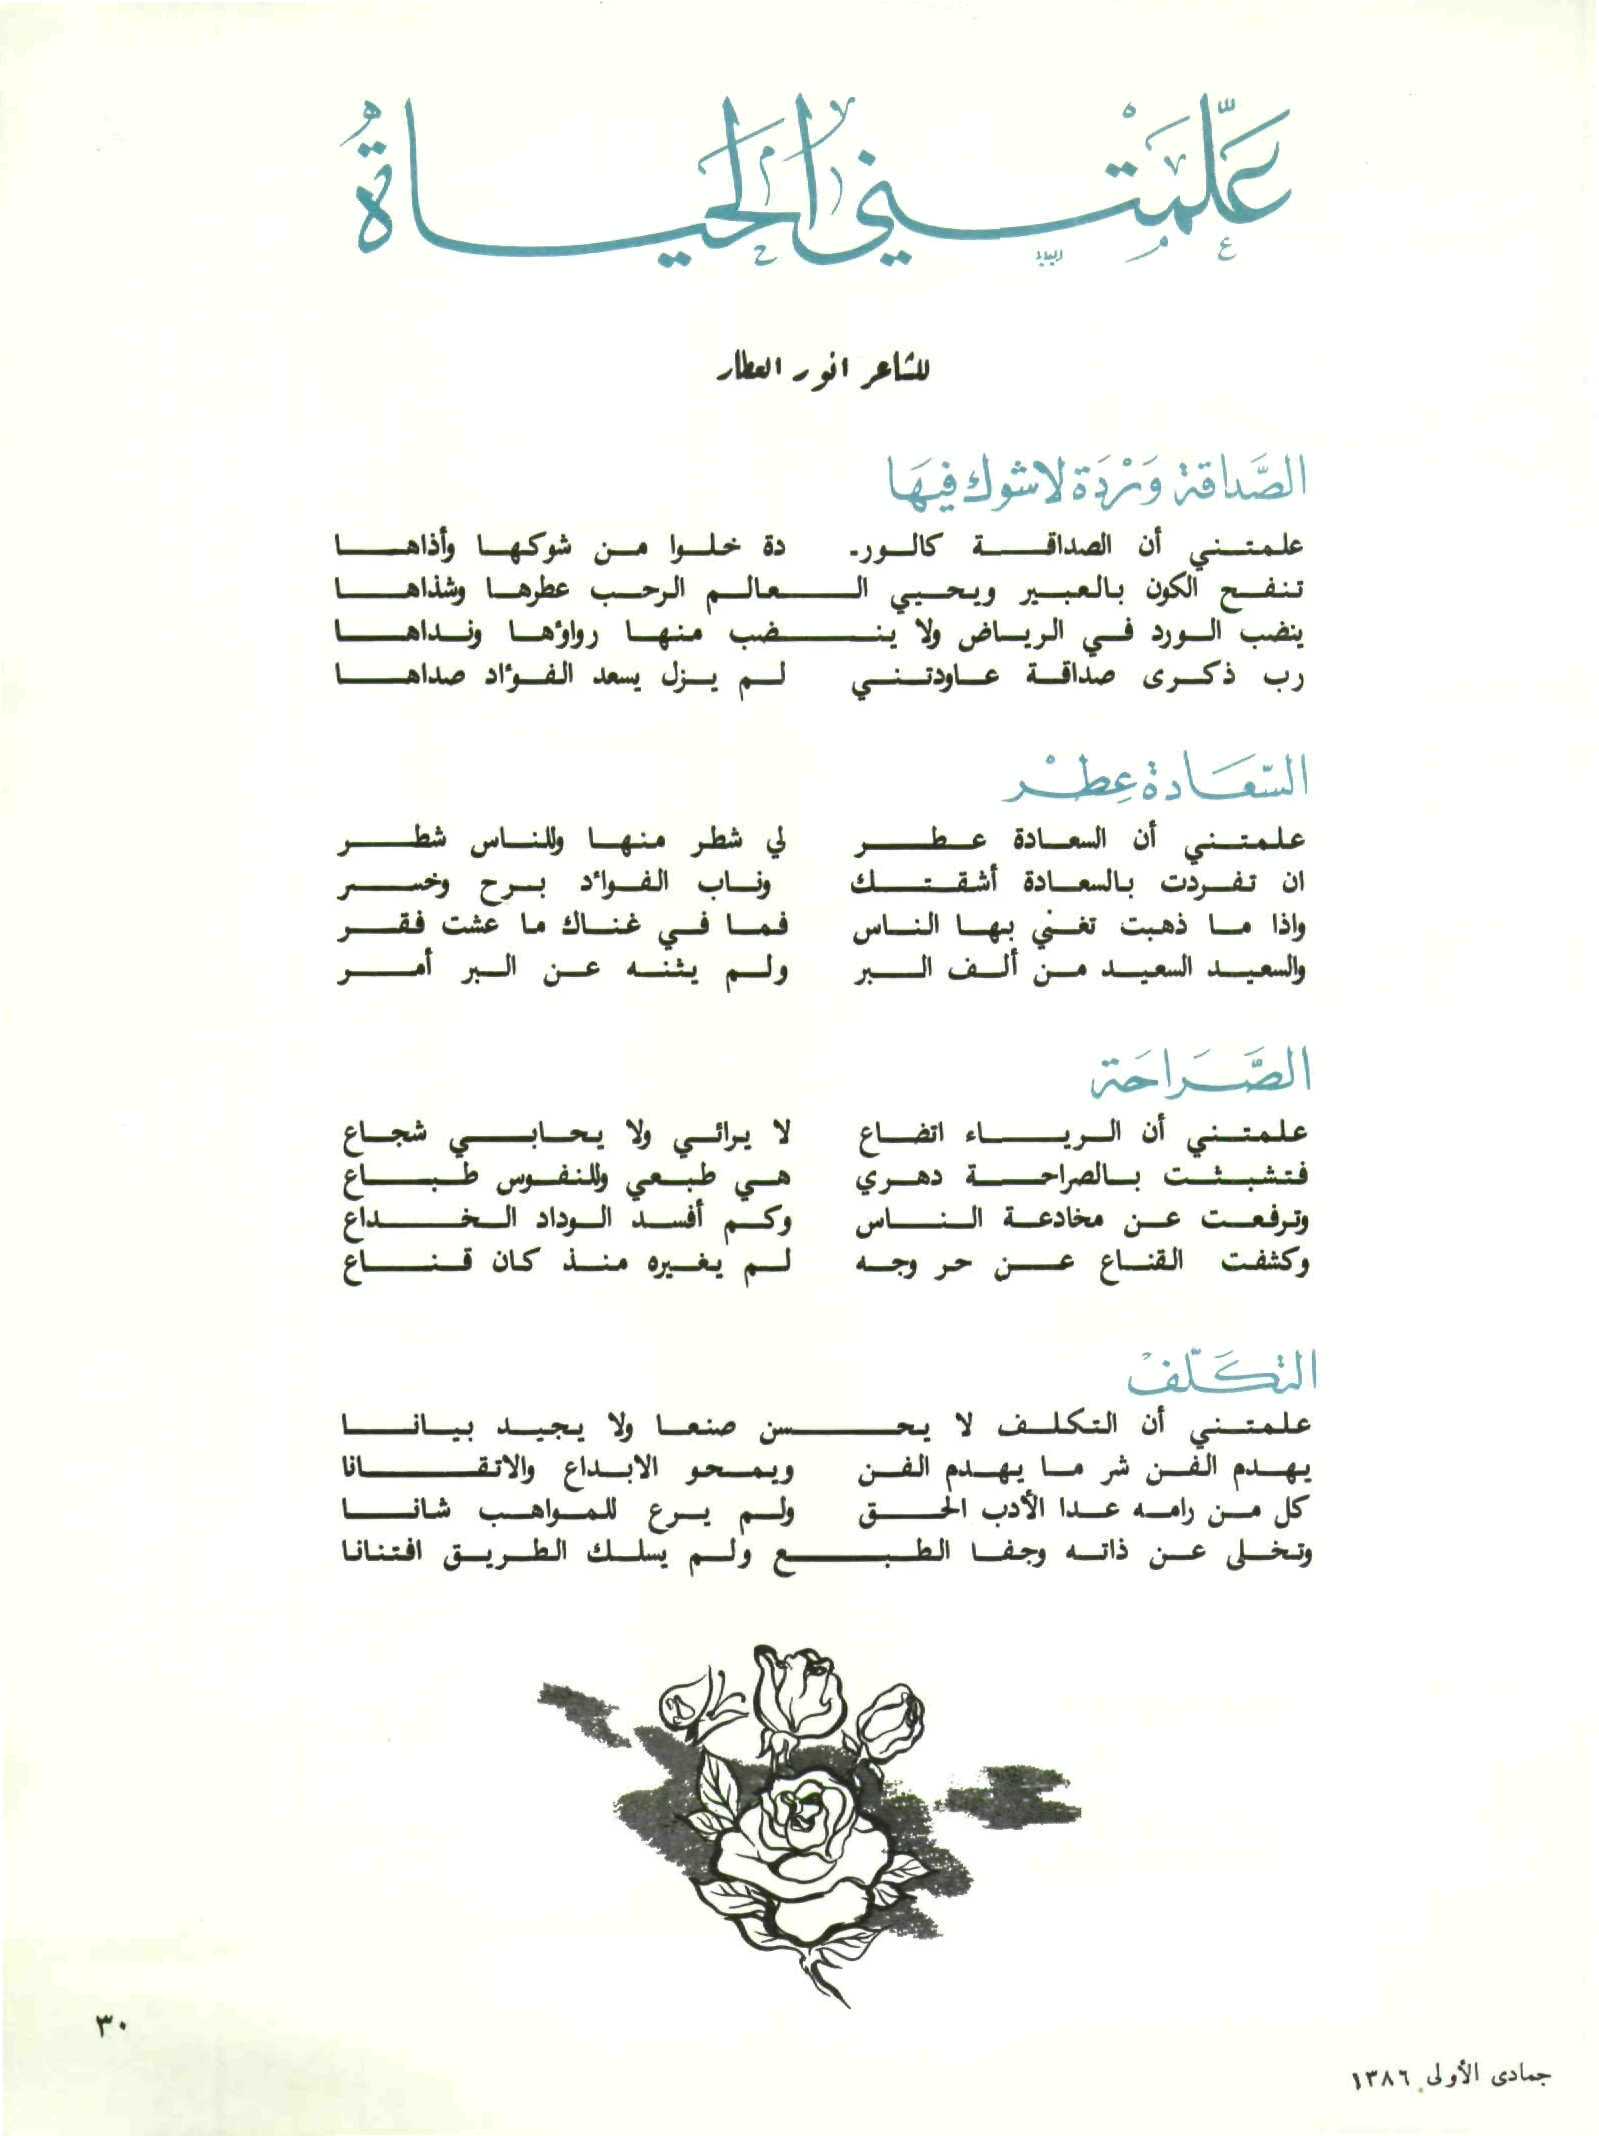 علّمتني الحياة
للشاعر انور العطار
الصَّداقة وَرْدَة لا شوك فيهَا
علمتني أن الصداقة كالور- دة خلوا من شوكها وأذاها
تنفح الكون بالعبير ويحيي العالم الرحب عطرها وشذاها
ينضب الورد في الرياض ولا ينضب منها رواؤها ونداها
رب ذكرى صداقة عاودتني لم يزل يسعد الفؤاد صداها
السّعَادة عِطْر
علمتني أن السعادة عطر لي شطر منها وللناس شطر
ان تفردت بالسعادة أشقتك وناب الفوائد برح وخسر
واذا ما ذهبت تغني بها الناس فما في غناك ما عشت فقر
والسعيد السعيد من ألف البر ولم يثنه عن البر أمر
الصَّرَاحَة
علمتني أن الرياء اتضاع لا يرائي ولا يحابي شجاع
فتشبثت بالصراحة دهري هي طبعي وللنفوس طباع
وترفعت عن مخادعة الناس وكم أفسد الوداد الخداع
وكشفت القناع عن حر وجه لم يغيره منذ كان قناع
التكَلّفْ
علمتني أن التكلف لا يحسن صنعا ولا يجيد بيانا
يهدم الفن شر ما يهدم الفن ويمحو الابداع والاتقانا
كل من رامه عدا الأدب الحق ولم يرع للمواهب شانا
وتخلى عن ذاته وجفا الطبع ولم يسلك الطريق افتنانا
٣٠
جمادى الأولى ١٣٨٦